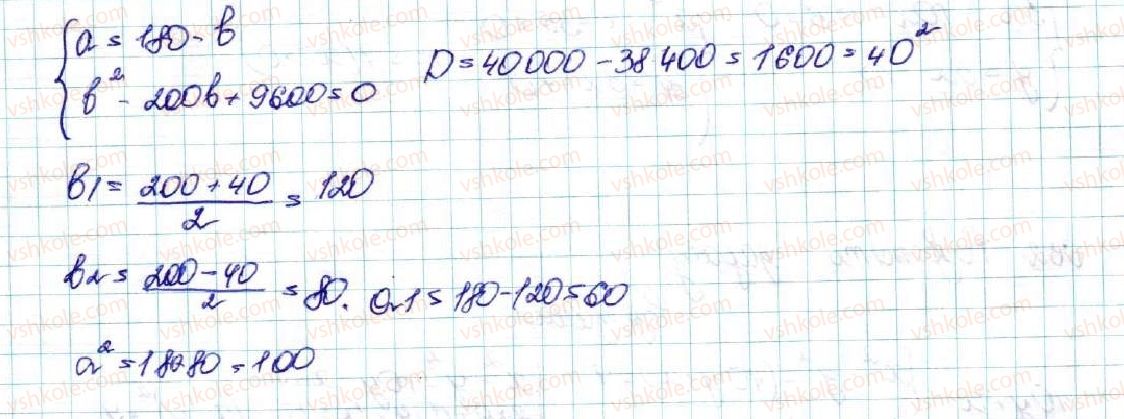 { a = 180 - b
b² - 200b + 9600 = 0
D = 40000 - 38400 = 1600 = 40²
b1 = (200 + 40)/2 = 120
b2 = (200 - 40)/2 = 80. a1 = 180 - 120 = 60
a² = 180-80 = 100